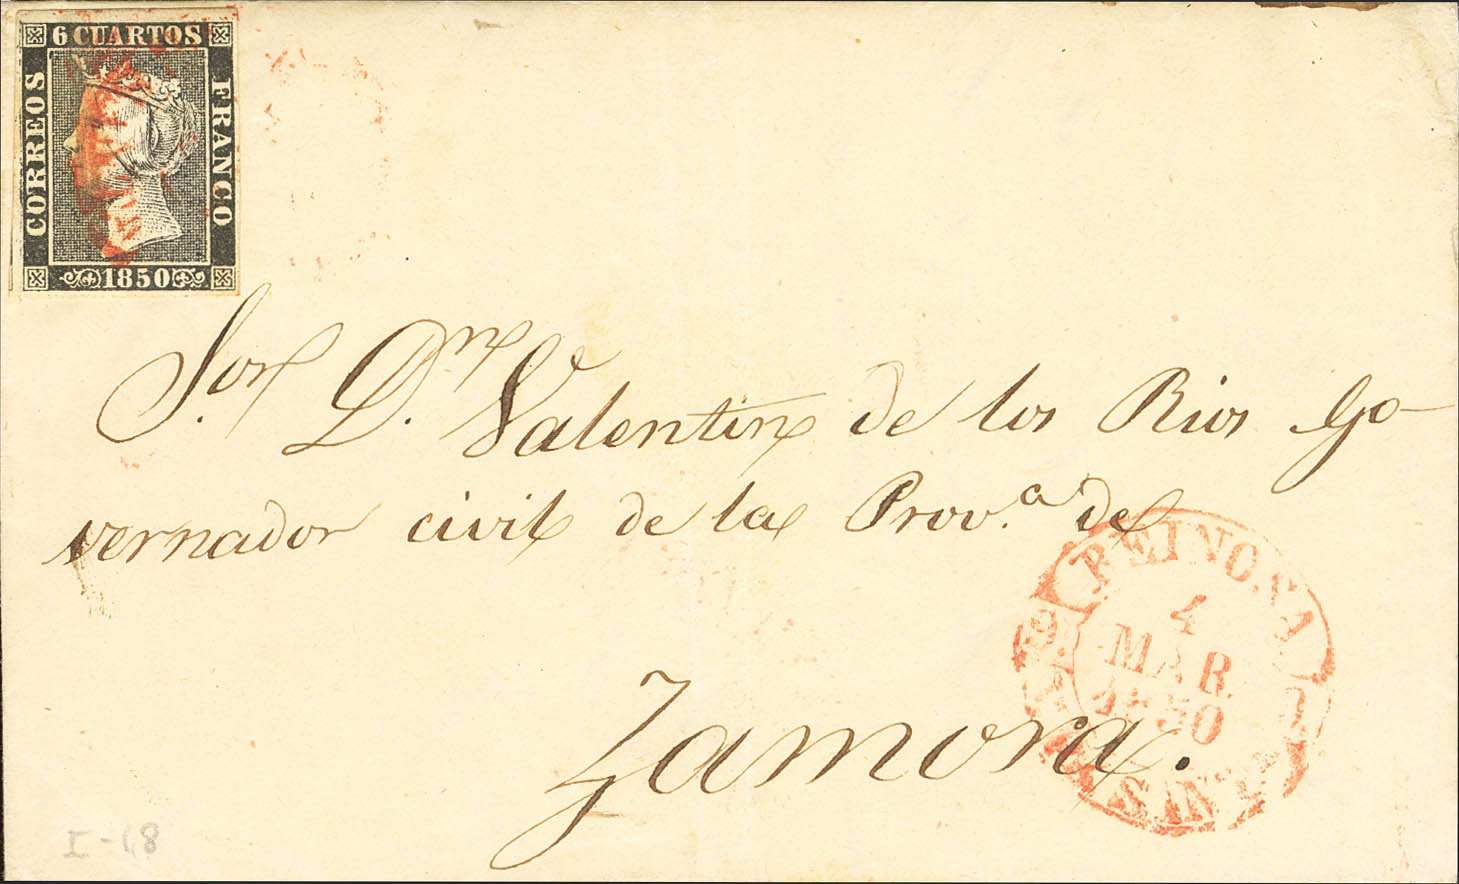 6 CUARTOS
CORREOS
FRANCO
1850
Sor. Dn. Valentin de los Rios Go-
vernador civil de la Prov.a de
Zamora.
REINOSA
4
MAR.
1850
I-1,8